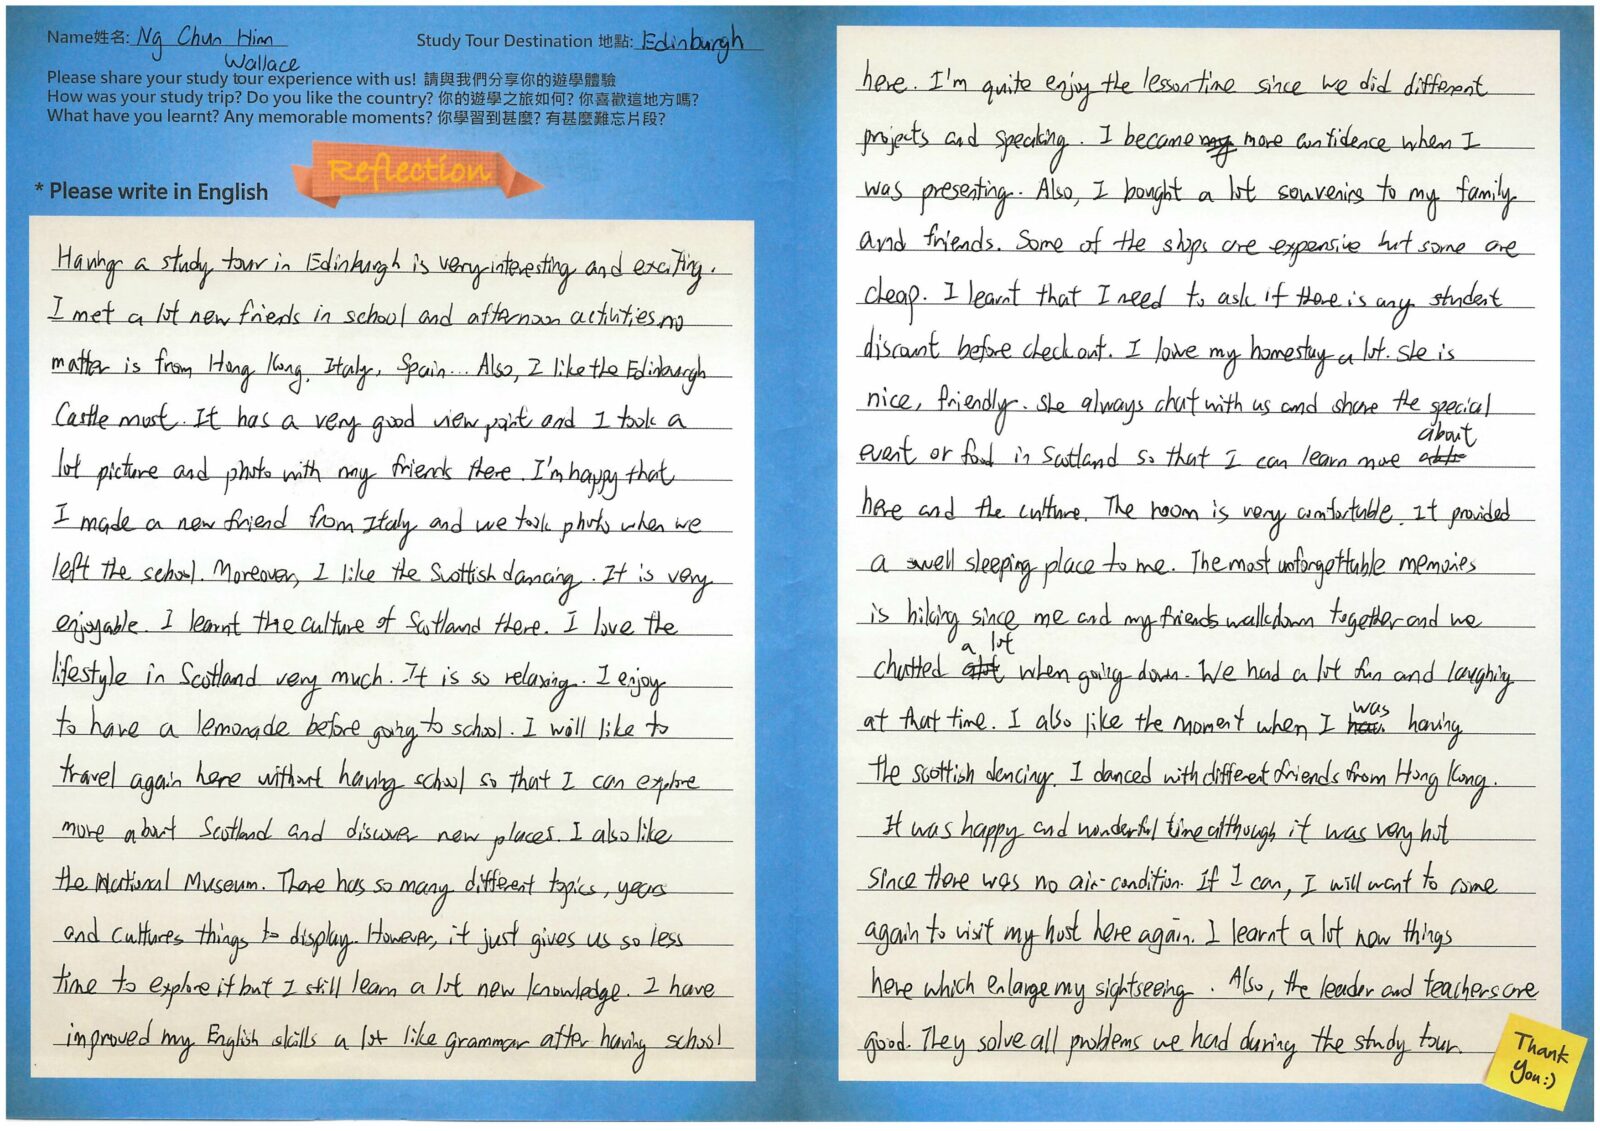 Name姓名: Ng Chun Him
Wallace
Study Tour Destination 地點: Edinburgh
Please share your study tour experience with us! 請與我們分享你的遊學體驗
How was your study trip? Do you like the country? 你的遊學之旅如何? 你喜歡這地方嗎?
What have you learnt? Any memorable moments? 你學習到甚麼? 有甚麼難忘片段?
Reflection
* Please write in English
Having a study tour in Edinburgh is very interesting and exciting.
I met a lot new friends in school and afternoon activities no
matter is from Hong Kong, Italy, Spain... Also, I like the Edinburgh
Castle most. It has a very good view point and I took a
lot picture and photo with my friends there. I'm happy that
I made a new friend from Italy and we took photo when we
left the school. Moreover, I like the Scottish dancing. It is very
enjoyable. I learnt the culture of Scotland there. I love the
lifestyle in Scotland very much. It is so relaxing. I enjoy
to have a lemonade before going to school. I will like to
travel again here without having school so that I can explore
more about Scotland and discover new places. I also like
the National Museum. There has so many different topics, years
and cultures things to display. However, it just gives us so less
time to explore it but I still learn a lot new knowledge. I have
improved my English skills a lot like grammar after having school
here. I'm quite enjoy the lesson time since we did different
projects and speaking. I became more confidence when I
was presenting. Also, I bought a lot souvenirs to my family
and friends. Some of the shops are expensive but some are
cheap. I learnt that I need to ask if there is any student
discount before check out. I love my homestay a lot. She is
nice, friendly. She always chat with us and share the special
event or food in Scotland so that I can learn more about
here and the culture. The room is very comfortable. It provided
a well sleeping place to me. The most unforgettable memories
is hiking since me and my friends walk down together and we
chatted a lot when going down. We had a lot fun and laughing
at that time. I also like the moment when I was having
the scottish dancing. I danced with different friends from Hong Kong.
It was happy and wonderful time although it was very hot
since there was no air-condition. If I can, I will want to come
again to visit my host here again. I learnt a lot new things
here which enlarge my sightseeing. Also, the leader and teachers are
good. They solve all problems we had during the study tour.
Thank
you:)